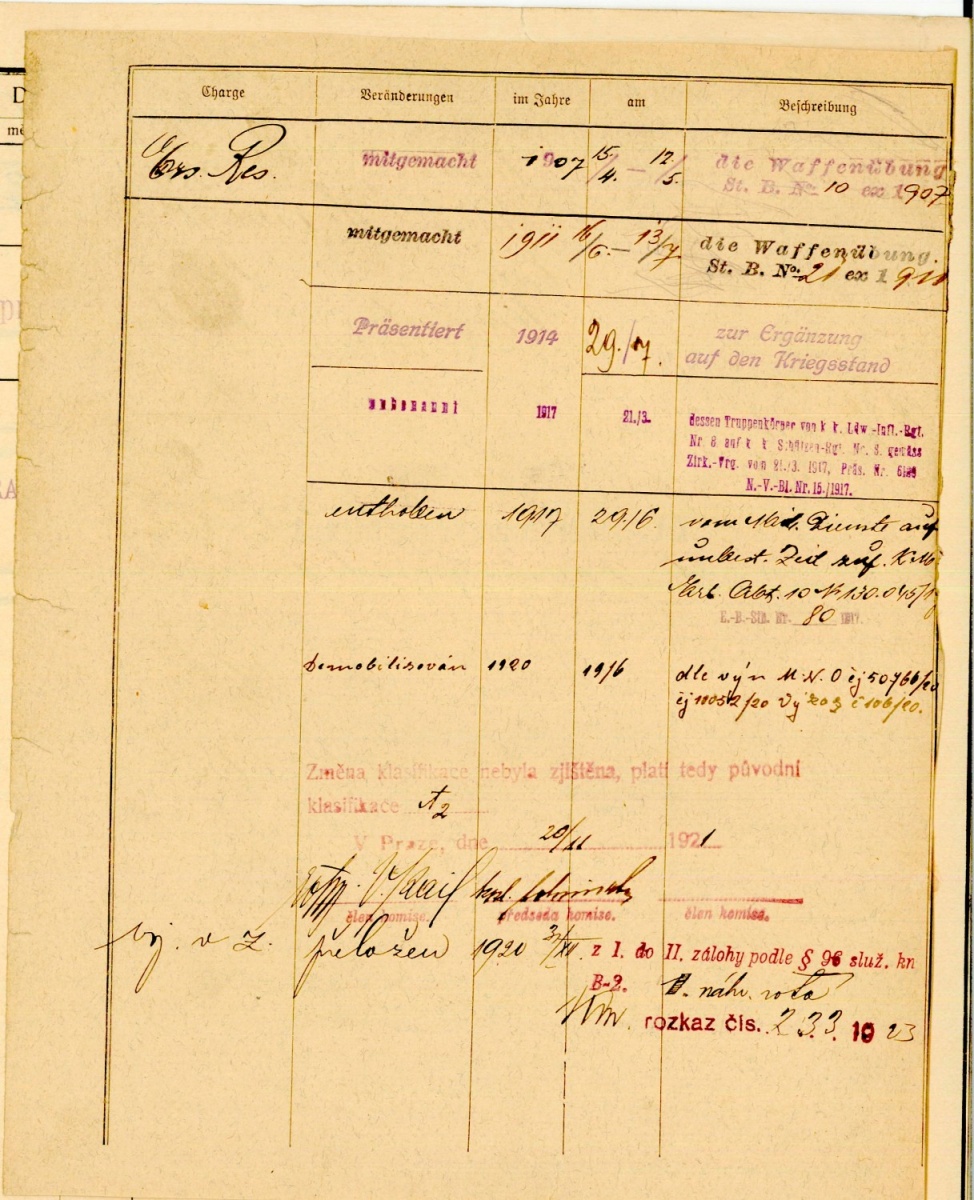 Charge Veränderungen im Jahre am Beschreibung
Ers. Res. mitgemacht 1907 15/4. — 12/5. die Waffenübung
St. B. No. 10 ex 1907
mitgemacht 1911 16/6. — 13/7. die Waffenübung.
St. B. No. 21 ex 1911
Präsentiert 1914 29./7. zur Ergänzung
auf den Kriegsstand
umbenannt 1917 21./3. dessen Truppenkörper von k. k. Ldw.-Inft.-Rgt.
Nr. 8 auf k. k. Schützen-Rgt. Nr. 8. gemäss
Zirk.-Vrg. vom 21./3. 1917, Präs. Nr.
N.-V.-Bl. Nr. 15./1917.
enthoben 1917 29./6. vom Mil. Dienste auf
unbest. Zeit zuf. K. M.
Erl. Abt. 10 N 130.045/17
E.-B.-Stb. Nr. 80 1917.
Demobilisován 1920 19/6 dle výn M. N. O čj 50766/20
čj 10052/20 Vý roz č 106/20.
Změna klasifikace nebyla zjištěna, platí tedy původní
klasifikace A2
V Praze, dne 20/11 1921
člen komise. předseda komise. člen komise.
voj. v z. přeložen 1920 31/XII. z I. do II. zálohy podle § 96 služ. kn
B-2. náhr. rota
rozkaz čís. 233. 1923